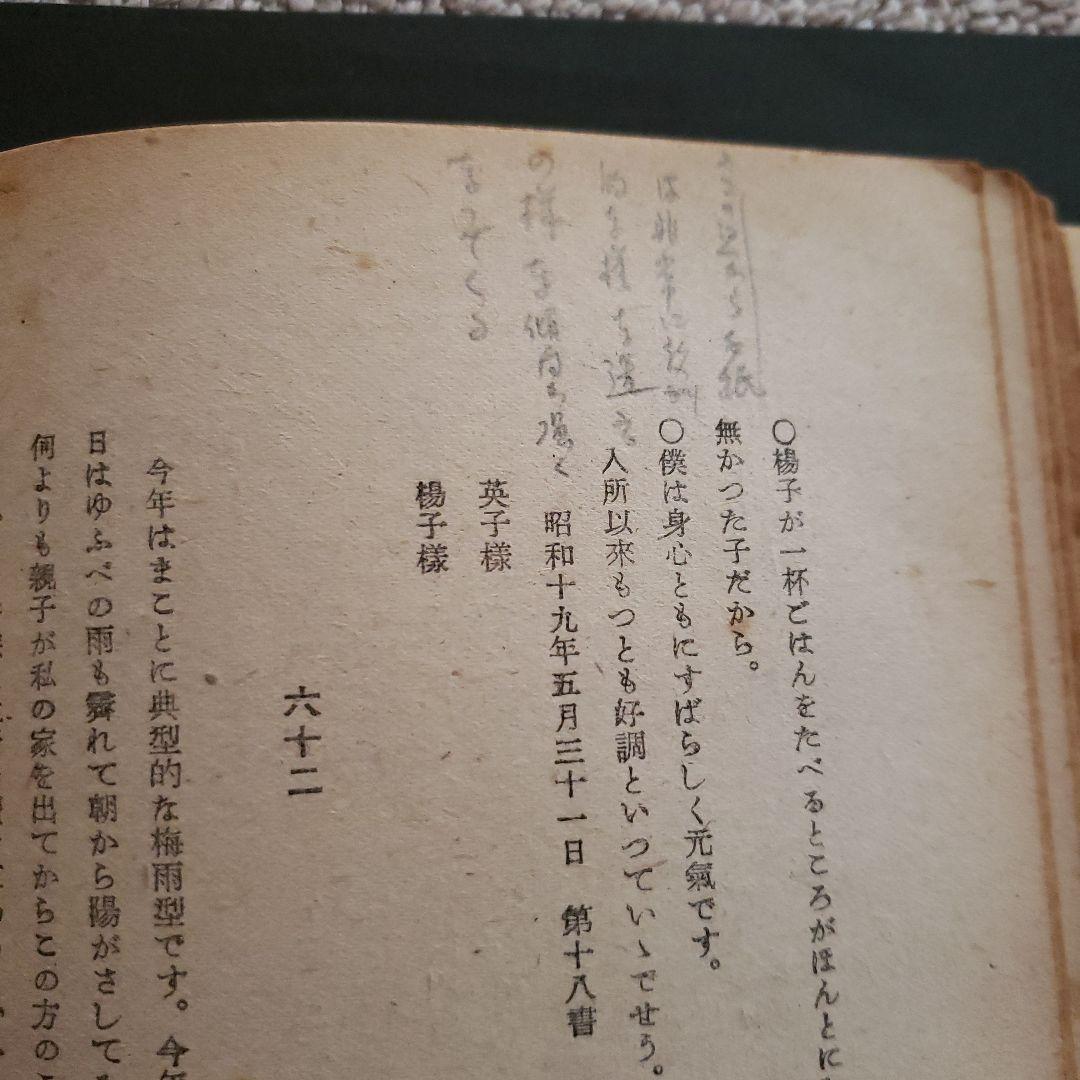 この辺から手紙
は非常に教訓
的な様を濃く
の様な傾向が強く
なつてくる
○楊子が一杯ごはんをたべるところがほんとに
無かつた子だから。
○僕は身心ともにすばらしく元氣です。
入所以來もつとも好調といつていゝでせう。
昭和十九年五月三十一日 第十八書
英子樣
楊子樣
六十二
今年はまことに典型的な梅雨型です。今年
日はゆふべの雨も霽れて朝から陽がさしてゐ
何よりも親子が私の家を出てからこの方の